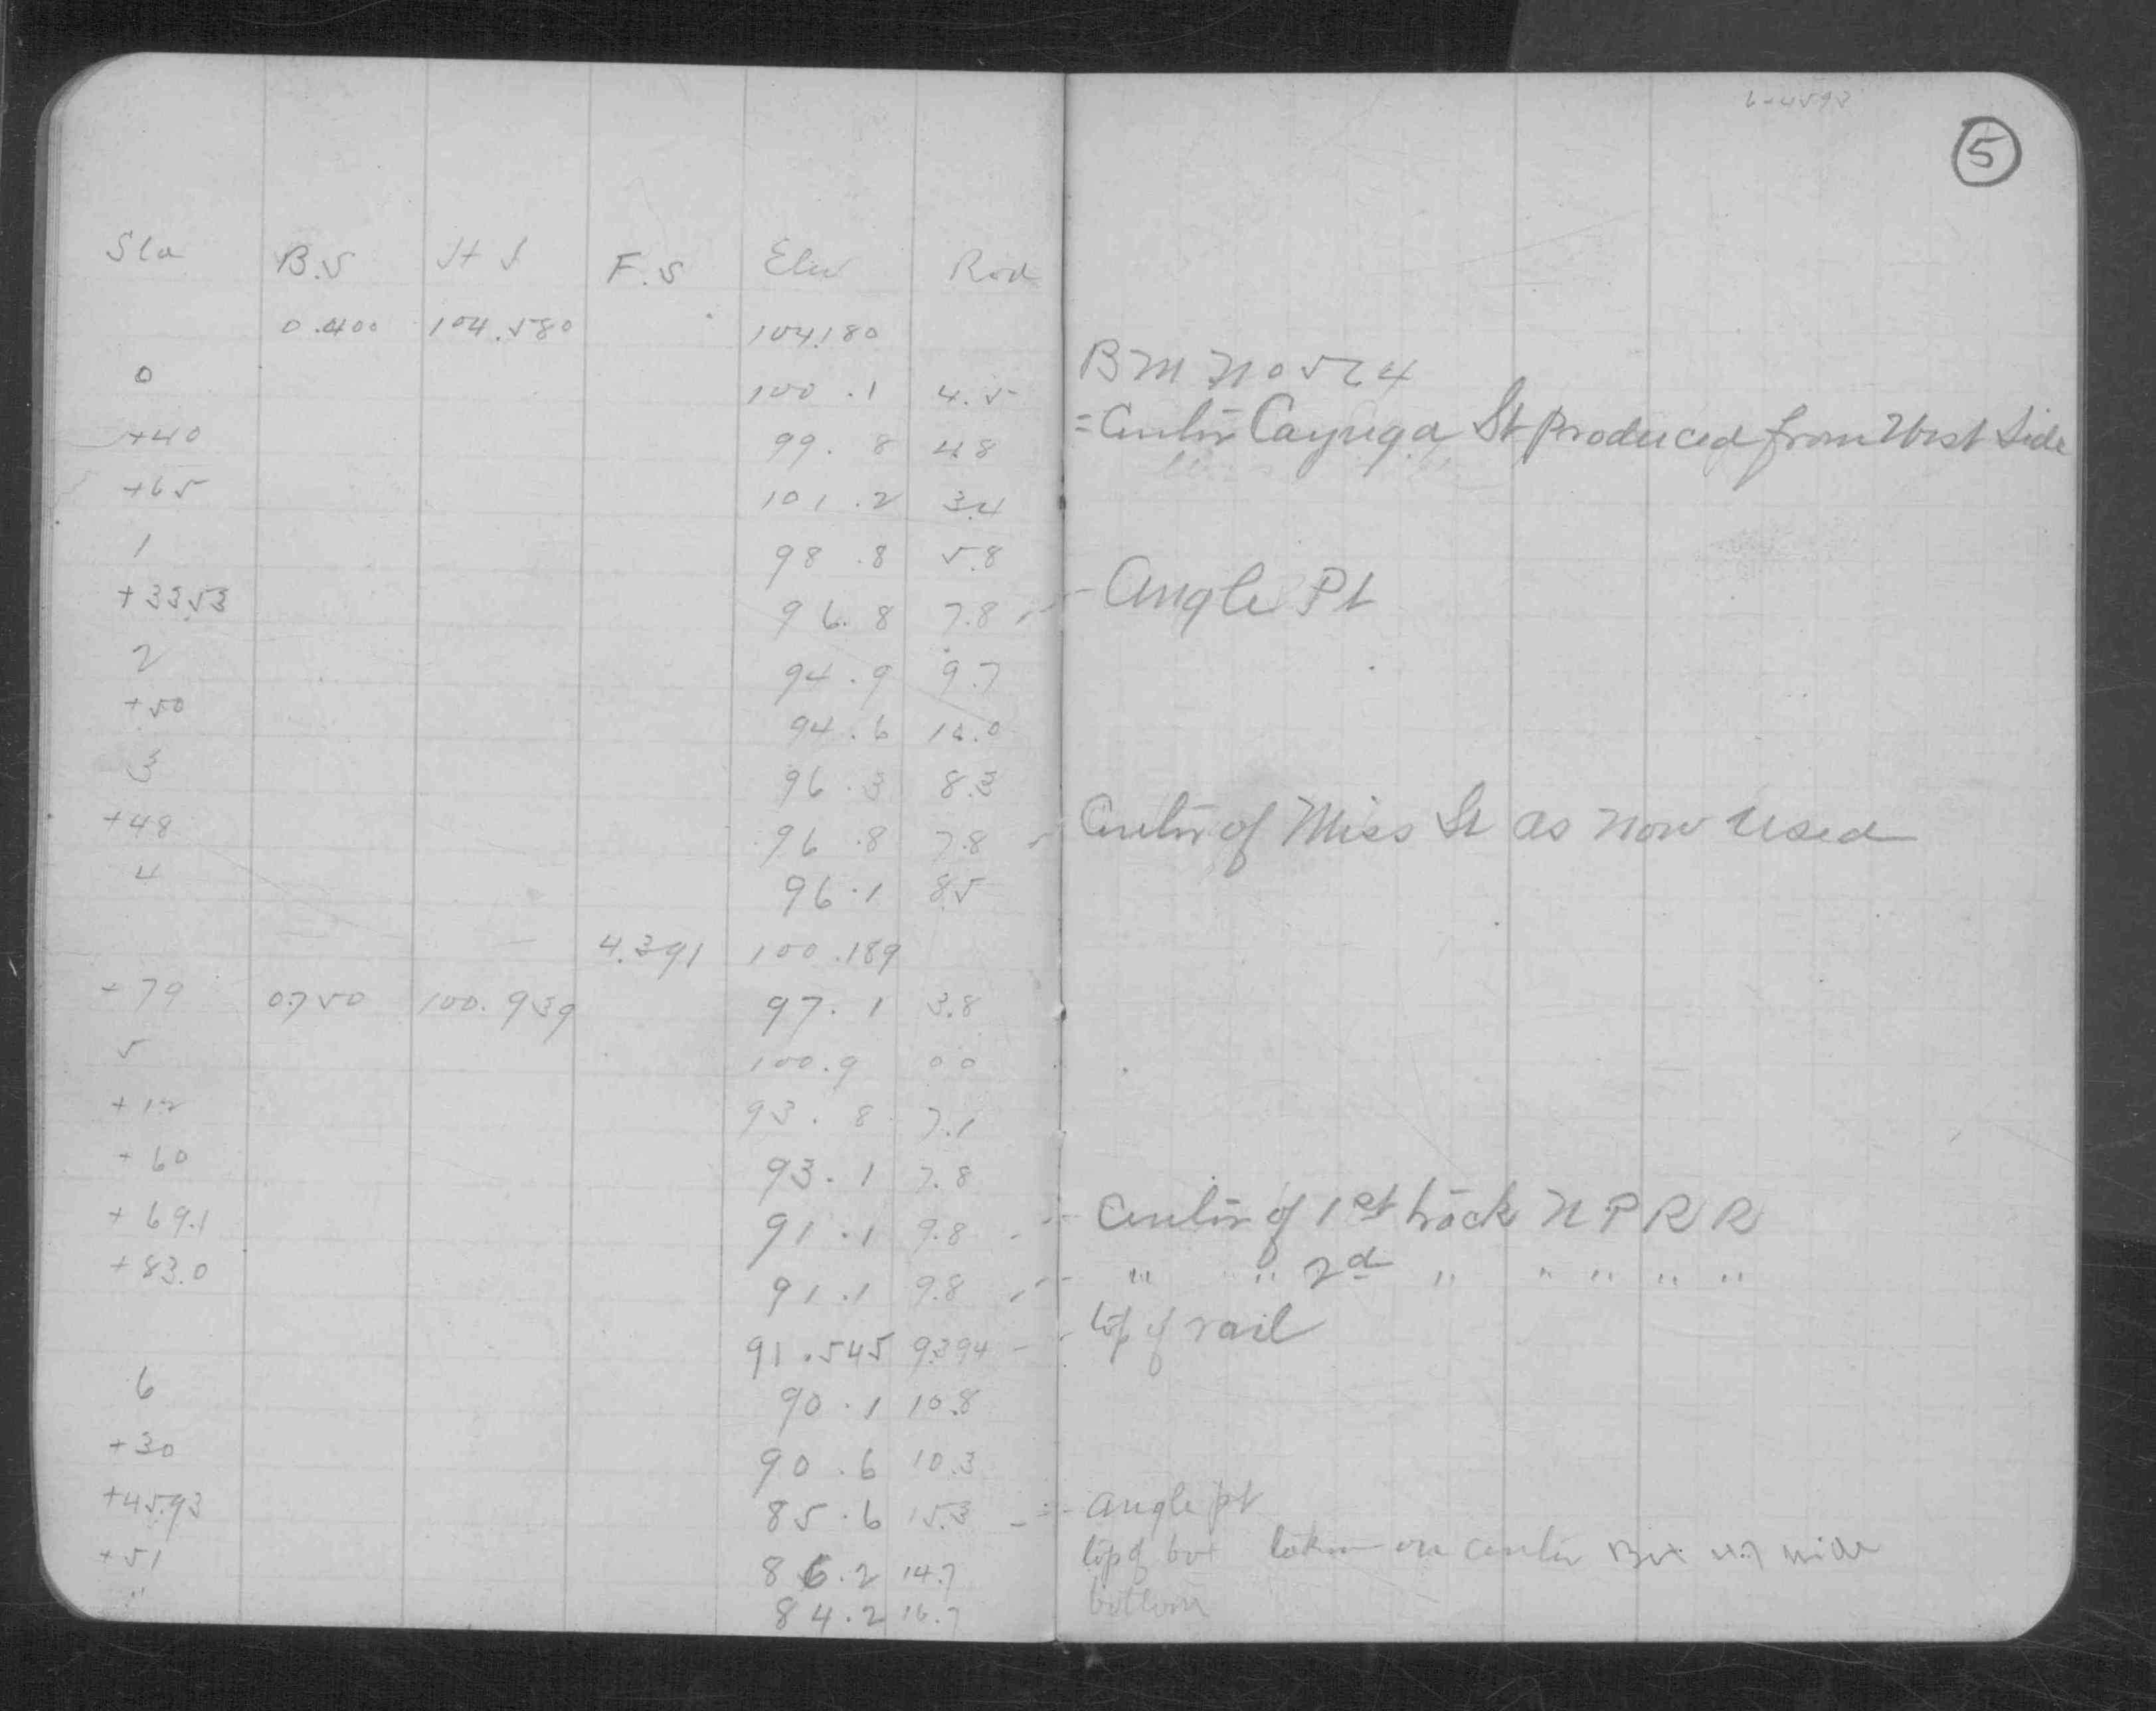 6-4593
5
Sta B.S H I F.S Elev Rod
0.400 104.580 104.180
BM No 524
0 100.1 4.5
= Center Cayuga St Produced from West Side
+40 99.8 4.8
+65 101.2 3.4
1 98.8 5.8
+33.53 96.8 7.8 - Angle Pt
2 94.9 9.7
+50 94.6 10.0
3 96.3 8.3
+48 96.8 7.8 Center of Miss St as now used
4 96.1 8.5
4.391 100.189
+79 0.750 100.939 97.1 3.8
5 100.9 0 0
+12 93.8 7.1
+60 93.1 7.8
+69.1 91.1 9.8 - Center of 1st track N P R R
+83.0 91.1 9.8 - " " 2d " " " " "
91.545 9.394 - top of rail
6 90.1 10.8
+30 90.6 10.3
+45.93 85.6 15.3 - angle pt
+51 86.2 14.7 top of box taken on center Box wide
" 84.2 16.7 bottom